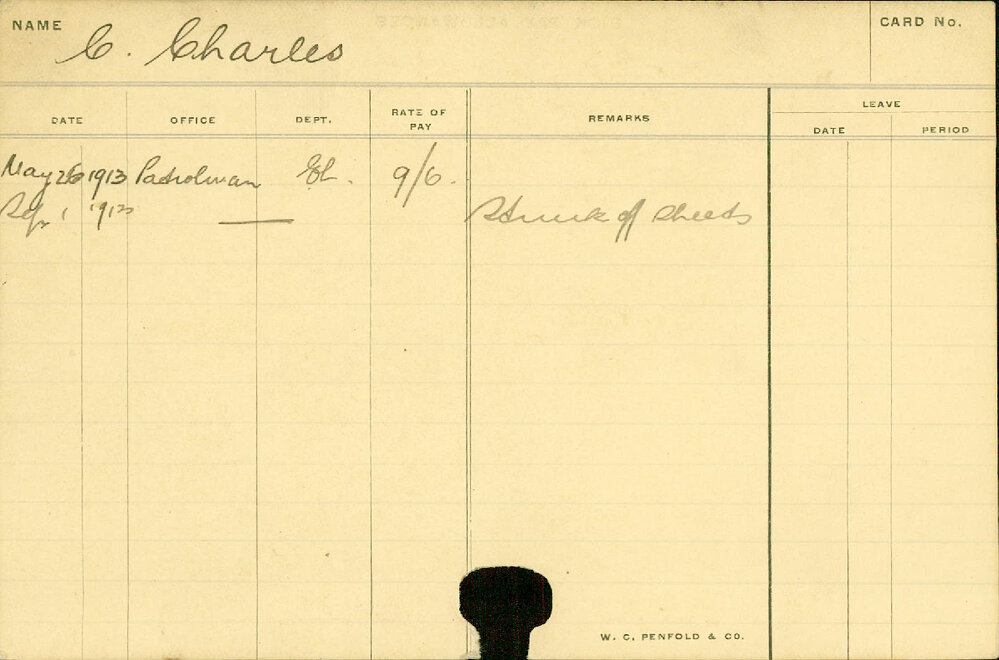 NAME C. Charles CARD No.
DATE OFFICE DEPT. RATE OF PAY REMARKS LEAVE
DATE PERIOD
May 26 1913 Patrolman El. 9/6.
Sep 1 1913 — Struck off sheets
W. C. PENFOLD & CO.